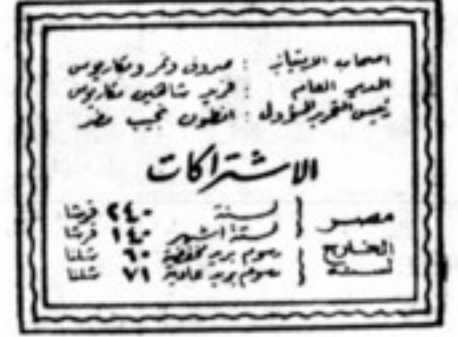 اصحاب الامتياز : صروف ونمر ومكاريوس
المدير العام : فريد شاهين مكاريوس
رئيس التحرير المسؤول : انطون نجيب مطر
الاشتراكات
مصر لسنة ٢٤٠ قرشا
لستة اشهر ١٤٠ قرشا
الخارج رسوم بريد مخفضة ٦٠ شلنا
لسنه رسوم بريد عادية ٧١ شلنا